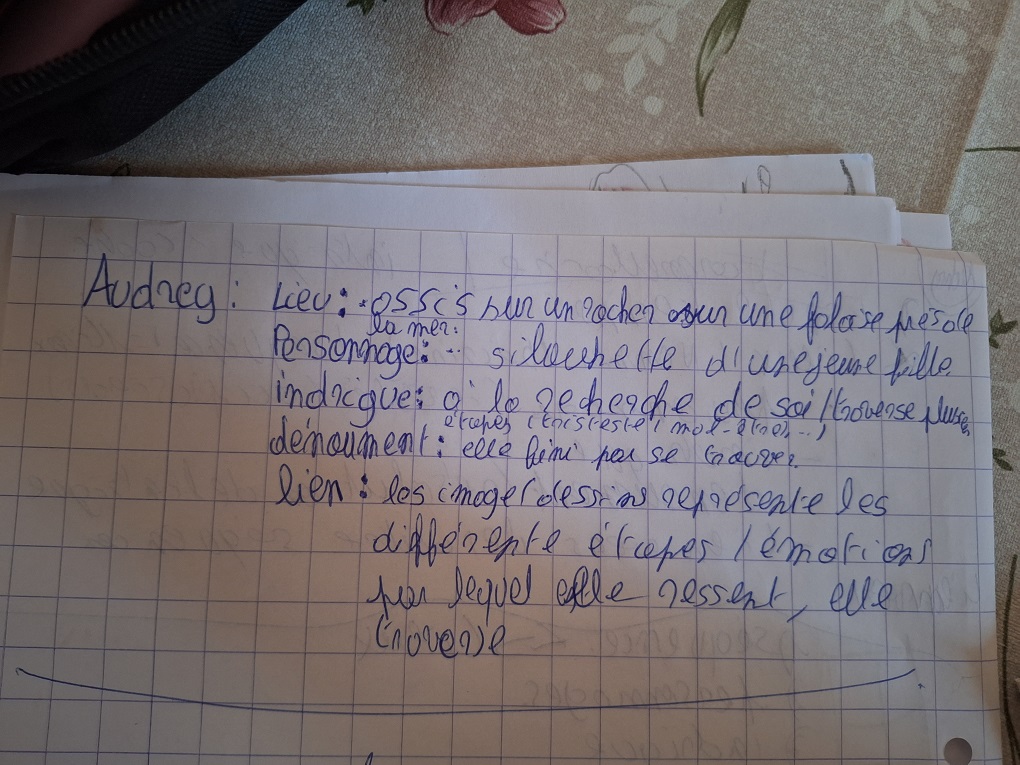 Audrey : Lieu : • assis sur un rocher sur une falaise près de
la mer.
Personnage : .. silouhette d'une jeune fille
indrigue : à la recherche de soi / traverse plusieurs
étapes (tristeste, mal-être, ...)
dénoument : elle fini par se trouver.
lien : les image/dessins représente les
différente étapes / émotions
par lequel elle ressent, elle
traverse